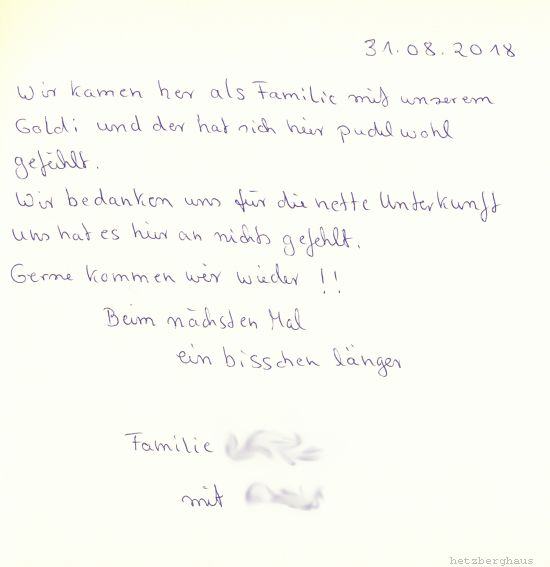 31.08.2018
Wir kamen her als Familie mit unserem
Goldi und der hat sich hier pudelwohl
gefühlt.
Wir bedanken uns für die nette Unterkunft
uns hat es hier an nichts gefehlt.
Gerne kommen wir wieder !!
Beim nächsten Mal
ein bisschen länger
Familie
mit
hetzberghaus